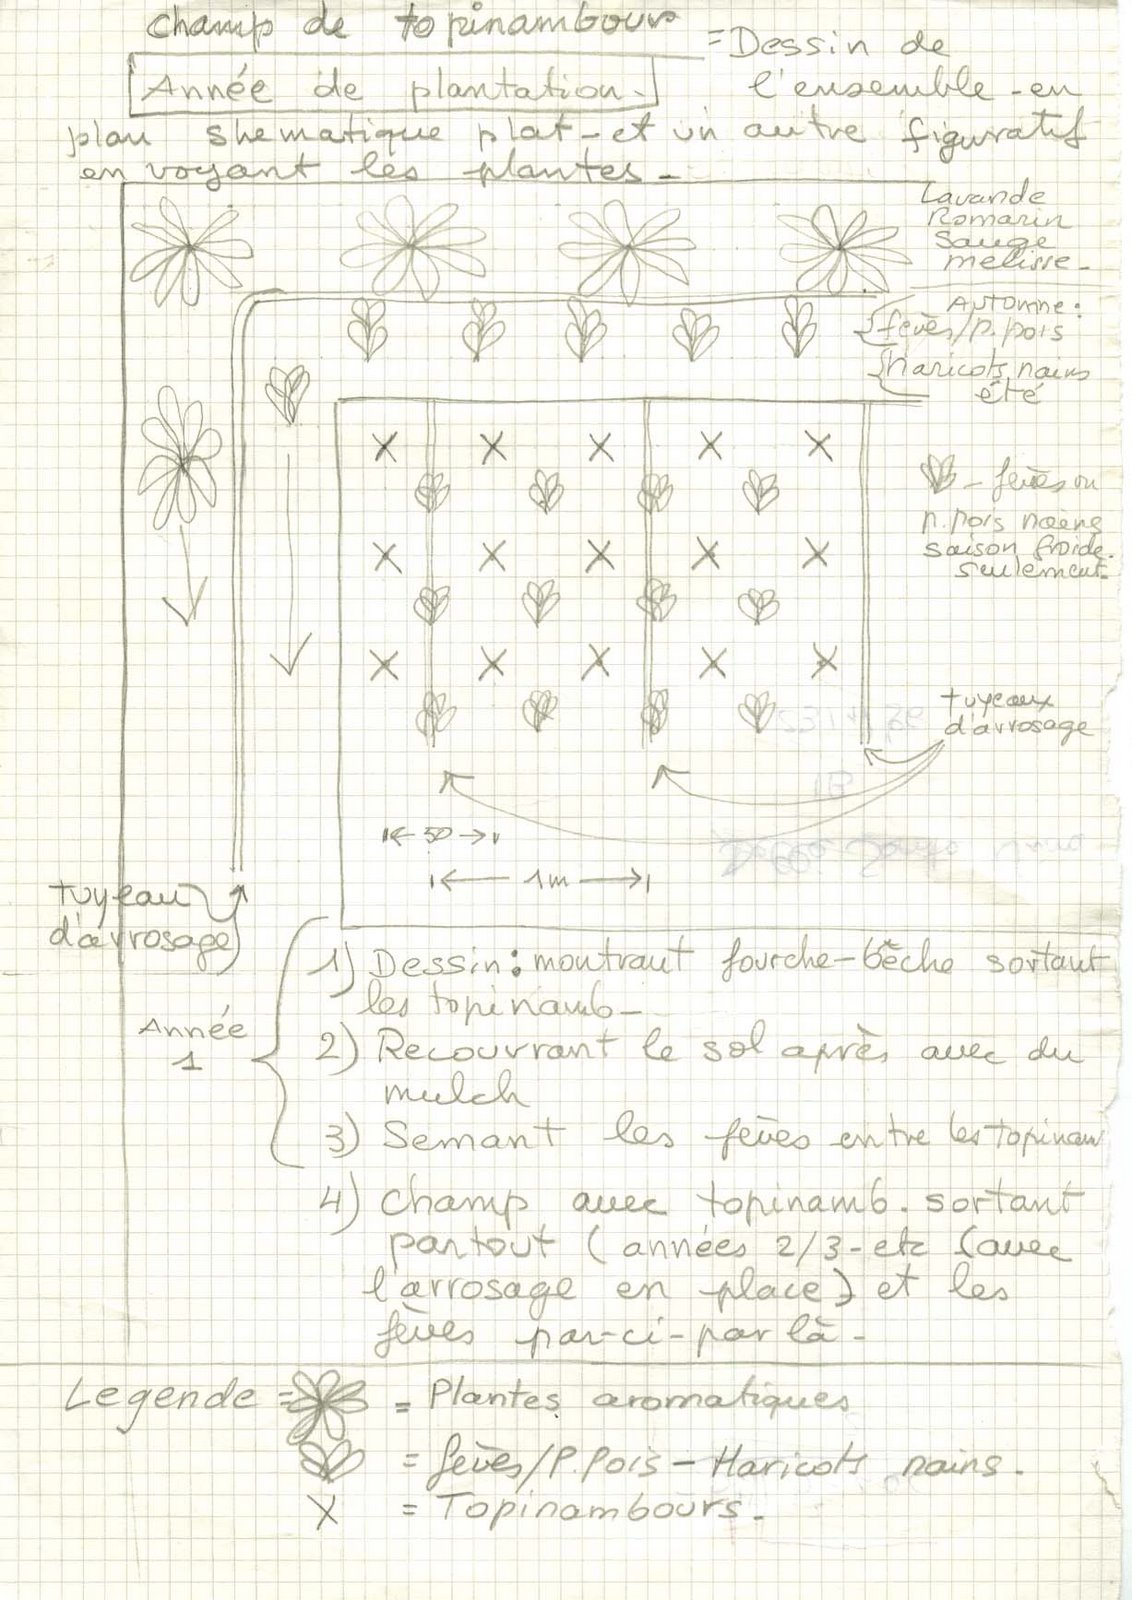 Champ de topinambours
Année de plantation.
= Dessin de
l'ensemble - en
plan shematique plat - et un autre figuratif
en voyant les plantes -
Lavande
Romarin
Sauge
melisse -
Automne :
fevès/p.pois
Haricots nains
été
- fevès ou
p.pois naèns
saison froide.
seulement.
tuyeaux
d'arrosage
50
1m
tuyeau
d'arrosage
Année
1
1) Dessin : montrant fourche-bêche sortant
les topinamb -
2) Recouvrant le sol après avec du
mulch
3) Semant les fevès entre les topinam
4) Champ avec topinamb. sortant
partout (années 2/3 - etc (avec
l'arrosage en place) et les
fèves par-ci-par là -
Legende =
= Plantes aromatiques
= fevès/P.Pois - Haricots nains.
X = Topinambours.